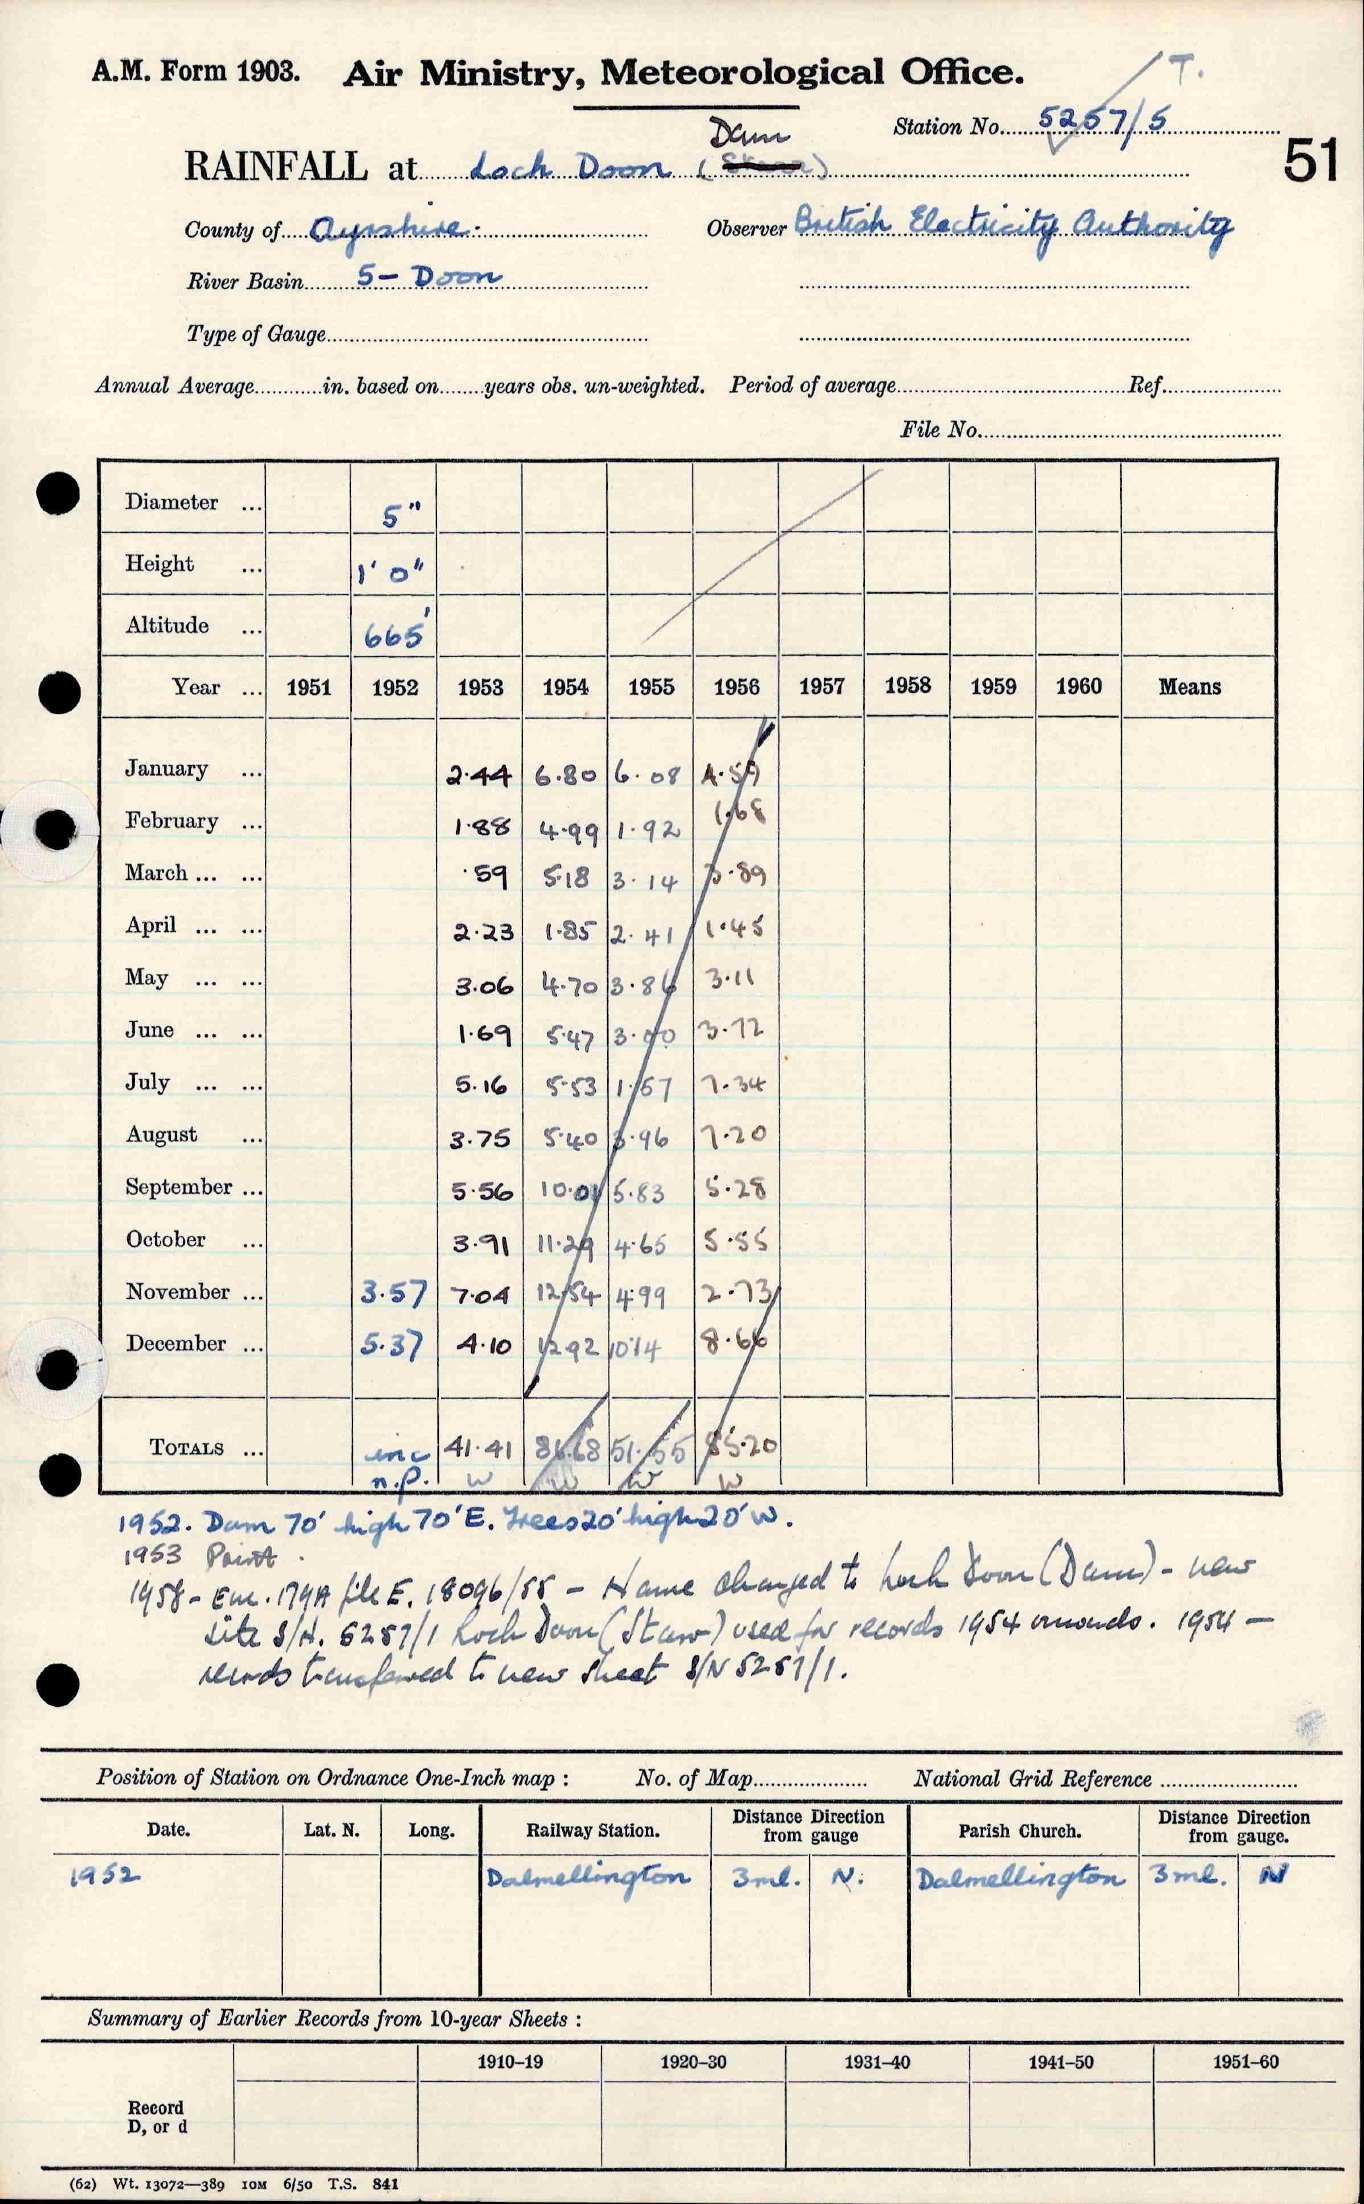 A.M. Form 1903. Air Ministry, Meteorological Office. T.
Station No. 5257/5
51
Dam
RAINFALL at Loch Doon ( )
County of Ayrshire. Observer British Electricity Authority
River Basin 5 - Doon
Type of Gauge
Annual Average in. based on years obs. un-weighted. Period of average Ref.
File No.
Diameter ... 5"
Height ... 1' 0"
Altitude ... 665'
Year ... 1951 1952 1953 1954 1955 1956 1957 1958 1959 1960 Means
January ... 2.44 6.80 6.08 4.59
February ... 1.88 4.99 1.92 1.68
March ... ... .59 5.18 3.14 3.89
April ... ... 2.23 1.85 2.41 1.45
May ... ... 3.06 4.70 3.86 3.11
June ... ... 1.69 5.47 3.00 3.72
July ... ... 5.16 5.53 1.57 7.34
August ... 3.75 5.40 3.96 7.20
September ... 5.56 10.01 5.83 5.28
October ... 3.91 11.29 4.65 5.55
November ... 3.57 7.04 12.54 4.99 2.73
December ... 5.37 4.10 12.92 10.14 8.66
TOTALS ... inc 41.41 86.68 51.55 55.20
n.p. w w w w
1952. Dam 70' high 70' E. Trees 20' high 20' W.
1953 Point.
1958 - Em. 179A file E. 18096/55 - Name changed to Loch Doon (Dam) - new
site S/N. 5257/1 Loch Doon (Starr) used for records 1954 onwards. 1954 -
records transferred to new sheet S/N 5257/1.
Position of Station on Ordnance One-Inch map : No. of Map National Grid Reference
Date. Lat. N. Long. Railway Station. Distance Direction from gauge Parish Church. Distance Direction from gauge.
1952 Dalmellington 3ml. N. Dalmellington 3ml. N
Summary of Earlier Records from 10-year Sheets :
1910–19 1920–30 1931–40 1941–50 1951–60
Record
D, or d
(62) Wt. 13072—389 10M 6/50 T.S. 841